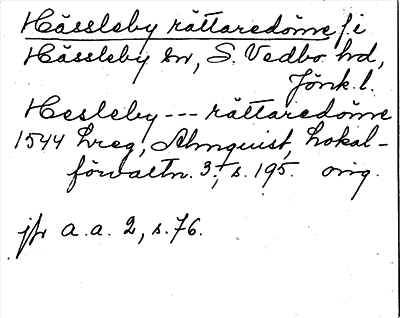 Hässleby rättaredöme, i
Hässleby sn, S. Vedbo hd,
Jönk. l.
Hesleby --- rättaredöme
1544 Lreg, Almquist, Lokal-
förvaltn. 3:, s. 195. orig.
jfr a.a. 2, s. 76.